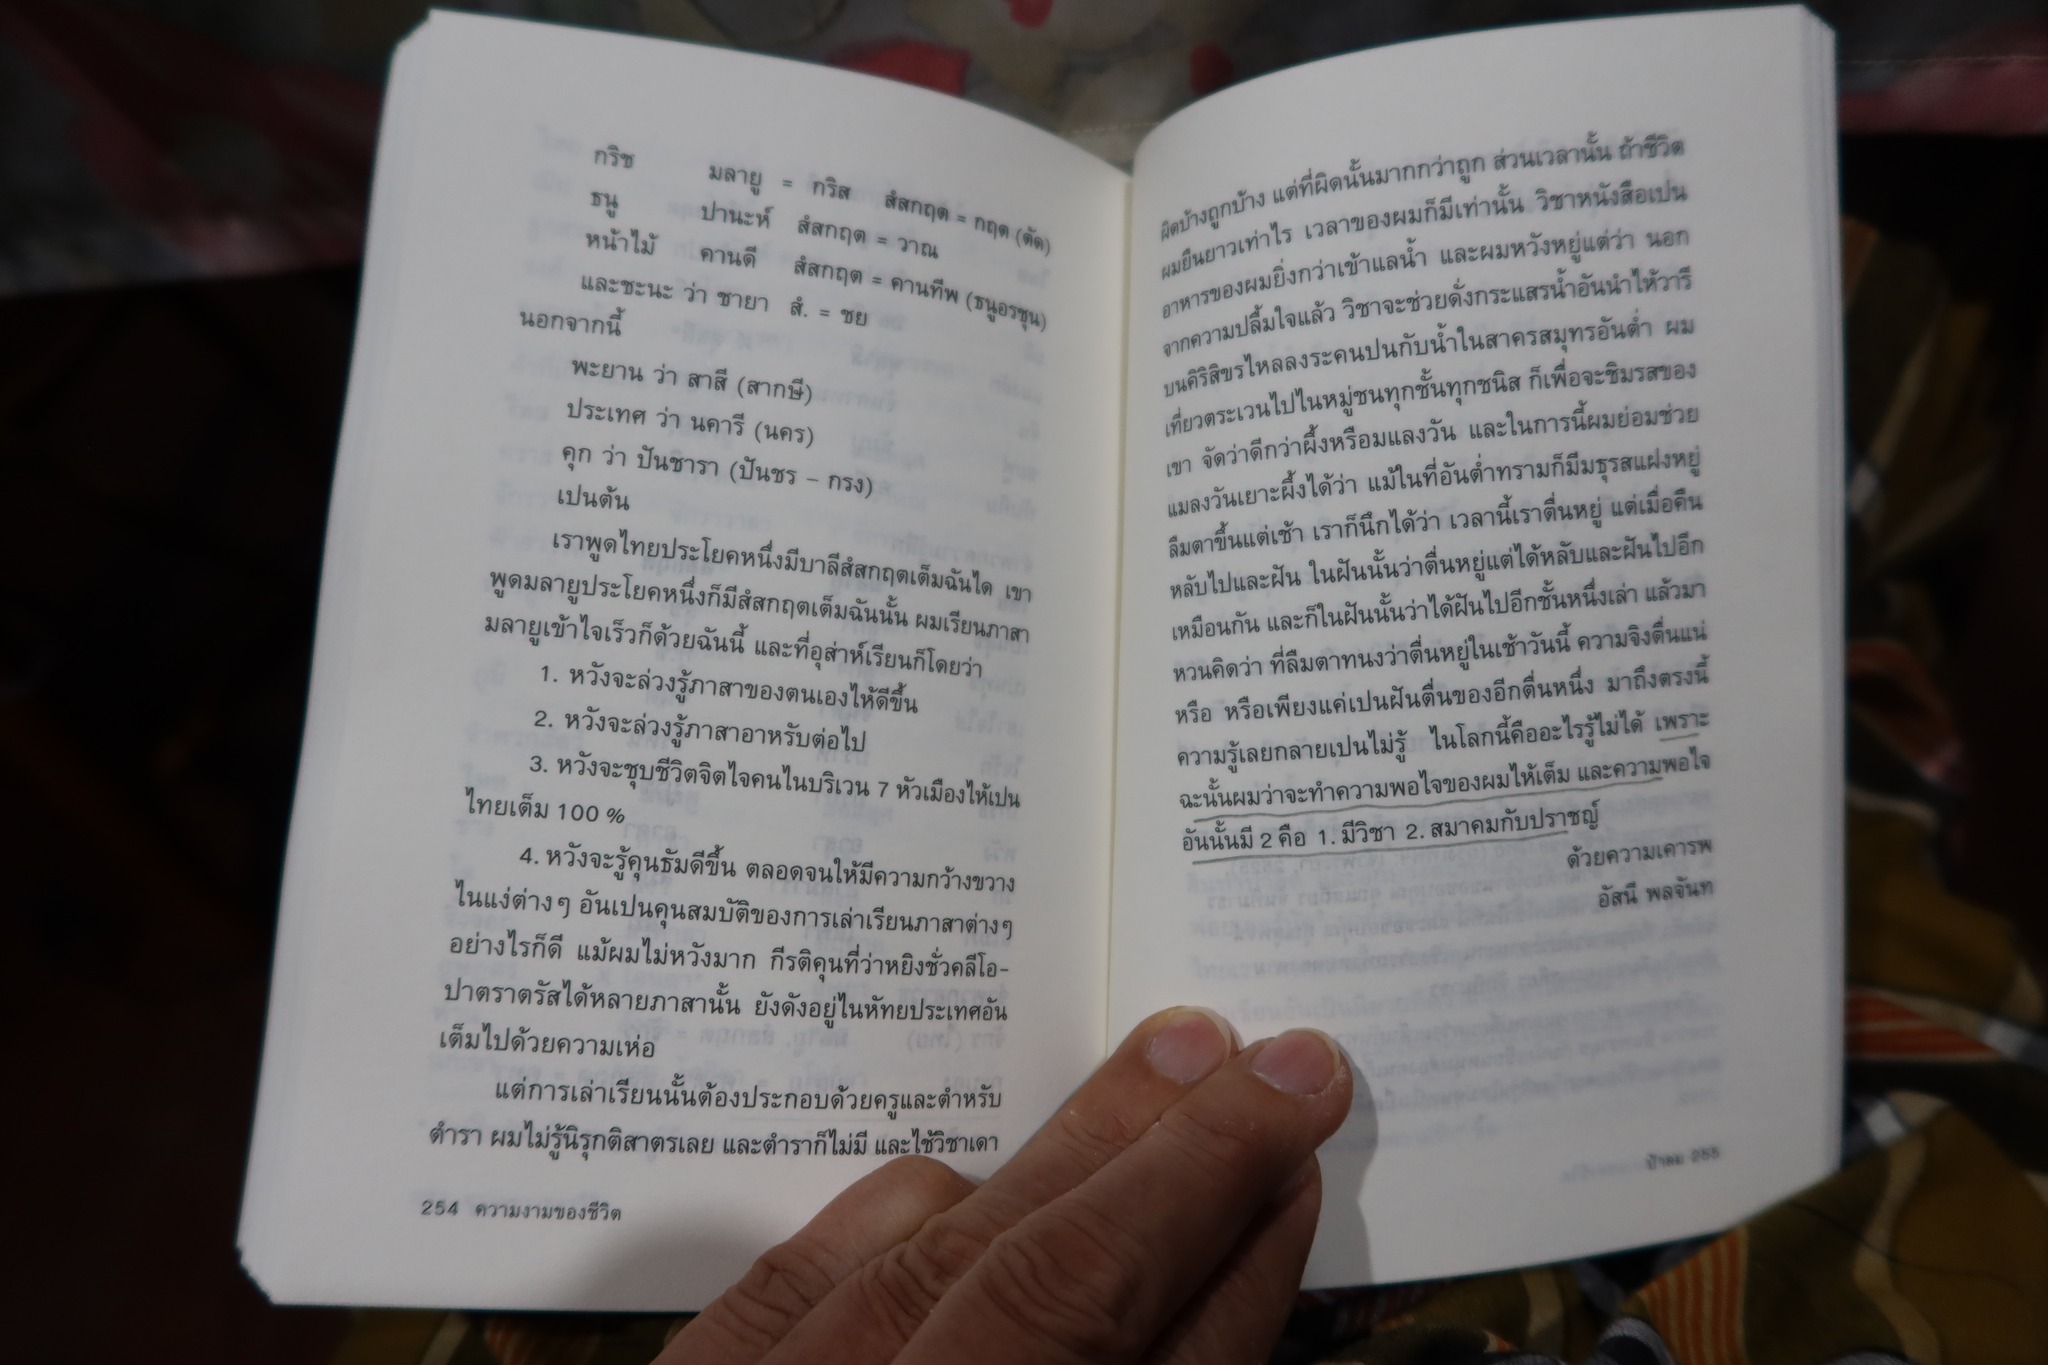 กริช มลายู = กริส สํสกฤต = กฤต (ตัด)
ธนู ปานะห์ สํสกฤต = วาณ
หน้าไม้ คานดี สํสกฤต = คานทีพ (ธนูอรชุน)
และชะนะ ว่า ชายา สํ. = ชย
นอกจากนี้
พะยาน ว่า สาสี (สากษี)
ประเทศ ว่า นคารี (นคร)
คุก ว่า ปันชารา (ปันชร – กรง)
เปนต้น
เราพูดไทยประโยคหนึ่งมีบาลีสํสกฤตเต็มฉันได เขา
พูดมลายูประโยคหนึ่งก็มีสํสกฤตเต็มฉันนั้น ผมเรียนภาสา
มลายูเข้าไจเร็วก็ด้วยฉันนี้ และที่อุส่าห์เรียนก็โดยว่า
1. หวังจะล่วงรู้ภาสาของตนเองไห้ดีขึ้น
2. หวังจะล่วงรู้ภาสาอาหรับต่อไป
3. หวังจะชุบชีวิตจิตไจคนไนบริเวน 7 หัวเมืองไห้เปน
ไทยเต็ม 100 %
4. หวังจะรู้คุนธัมดีขึ้น ตลอดจนให้มีความกว้างขวาง
ไนแง่ต่างๆ อันเปนคุนสมบัติของการเล่าเรียนภาสาต่างๆ
อย่างไรก็ดี แม้ผมไม่หวังมาก กีรติคุนที่ว่าหยิงชั่วคลีโอ-
ปาตราตรัสได้หลายภาสานั้น ยังดังอยู่ไนหัทยประเทศอัน
เต็มไปด้วยความเห่อ
แต่การเล่าเรียนนั้นต้องประกอบด้วยครูและตำหรับ
ตำรา ผมไม่รู้นิรุกติสาตรเลย และตำราก็ไม่มี และไช้วิชาเดา
254 ความงามของชีวิต
ผิดบ้างถูกบ้าง แต่ที่ผิดนั้นมากกว่าถูก ส่วนเวลานั้น ถ้าชีวิต
ผมยืนยาวเท่าไร เวลาของผมก็มีเท่านั้น วิชาหนังสือเปน
อาหารของผมยิ่งกว่าเข้าแลน้ำ และผมหวังหยู่แต่ว่า นอก
จากความปลื้มไจแล้ว วิชาจะช่วยดั่งกระแสรน้ำอันนำไห้วารี
บนคิริสิขรไหลลงระคนปนกับน้ำไนสาครสมุทรอันต่ำ ผม
เที่ยวตระเวนไปไนหมู่ชนทุกชั้นทุกชนิส ก็เพื่อจะชิมรสของ
เขา จัดว่าดีกว่าผึ้งหรือมแลงวัน และไนการนี้ผมย่อมช่วย
แมลงวันเยาะผึ้งได้ว่า แม้ไนที่อันต่ำทรามก็มีมธุรสแฝงหยู่
ลืมตาขึ้นแต่เช้า เราก็นึกได้ว่า เวลานี้เราตื่นหยู่ แต่เมื่อคืน
หลับไปและฝัน ไนฝันนั้นว่าตื่นหยู่แต่ได้หลับและฝันไปอีก
เหมือนกัน และก็ไนฝันนั้นว่าได้ฝันไปอีกชั้นหนึ่งเล่า แล้วมา
หวนคิดว่า ที่ลืมตาทนงว่าตื่นหยู่ไนเช้าวันนี้ ความจิงตื่นแน่
หรือ หรือเพียงแค่เปนฝันตื่นของอีกตื่นหนึ่ง มาถึงตรงนี้
ความรู้เลยกลายเปนไม่รู้ ไนโลกนี้คืออะไรรู้ไม่ได้ เพราะ
ฉะนั้นผมว่าจะทำความพอไจของผมไห้เต็ม และความพอไจ
อันนั้นมี 2 คือ 1. มีวิชา 2. สมาคมกับปราชญ์
ด้วยความเคารพ
อัสนี พลจันท
ป้าลม 255